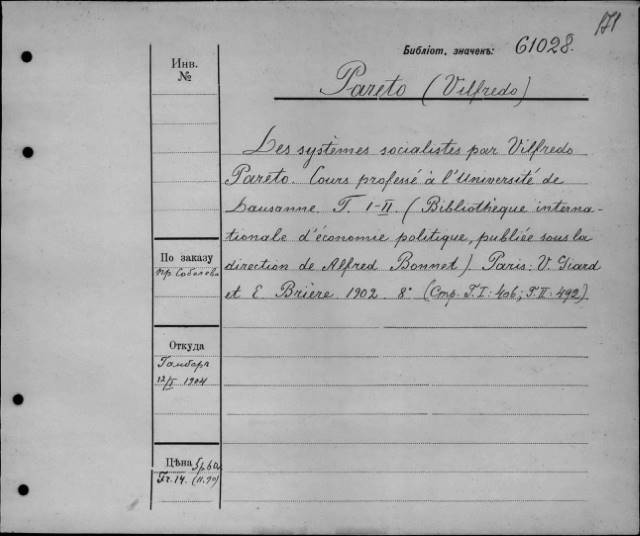 171
Библіот. значекъ: 61028.
Инв.
№
Pareto (Vilfredo)
Les systèmes socialistes par Vilfredo
Pareto. Cours professé à l'Université de
Lausanne. T. I-II (Bibliothèque interna-
tionale d'économie politique, publiée sous la
direction de Alfred Bonnet) Paris: V. Giard
et E Brière 1902. 8° (Стр. T.I: 406; T.II: 492).
По заказу
пр Соболева
Откуда
12/V 1904
Цѣна
Fr. 14.